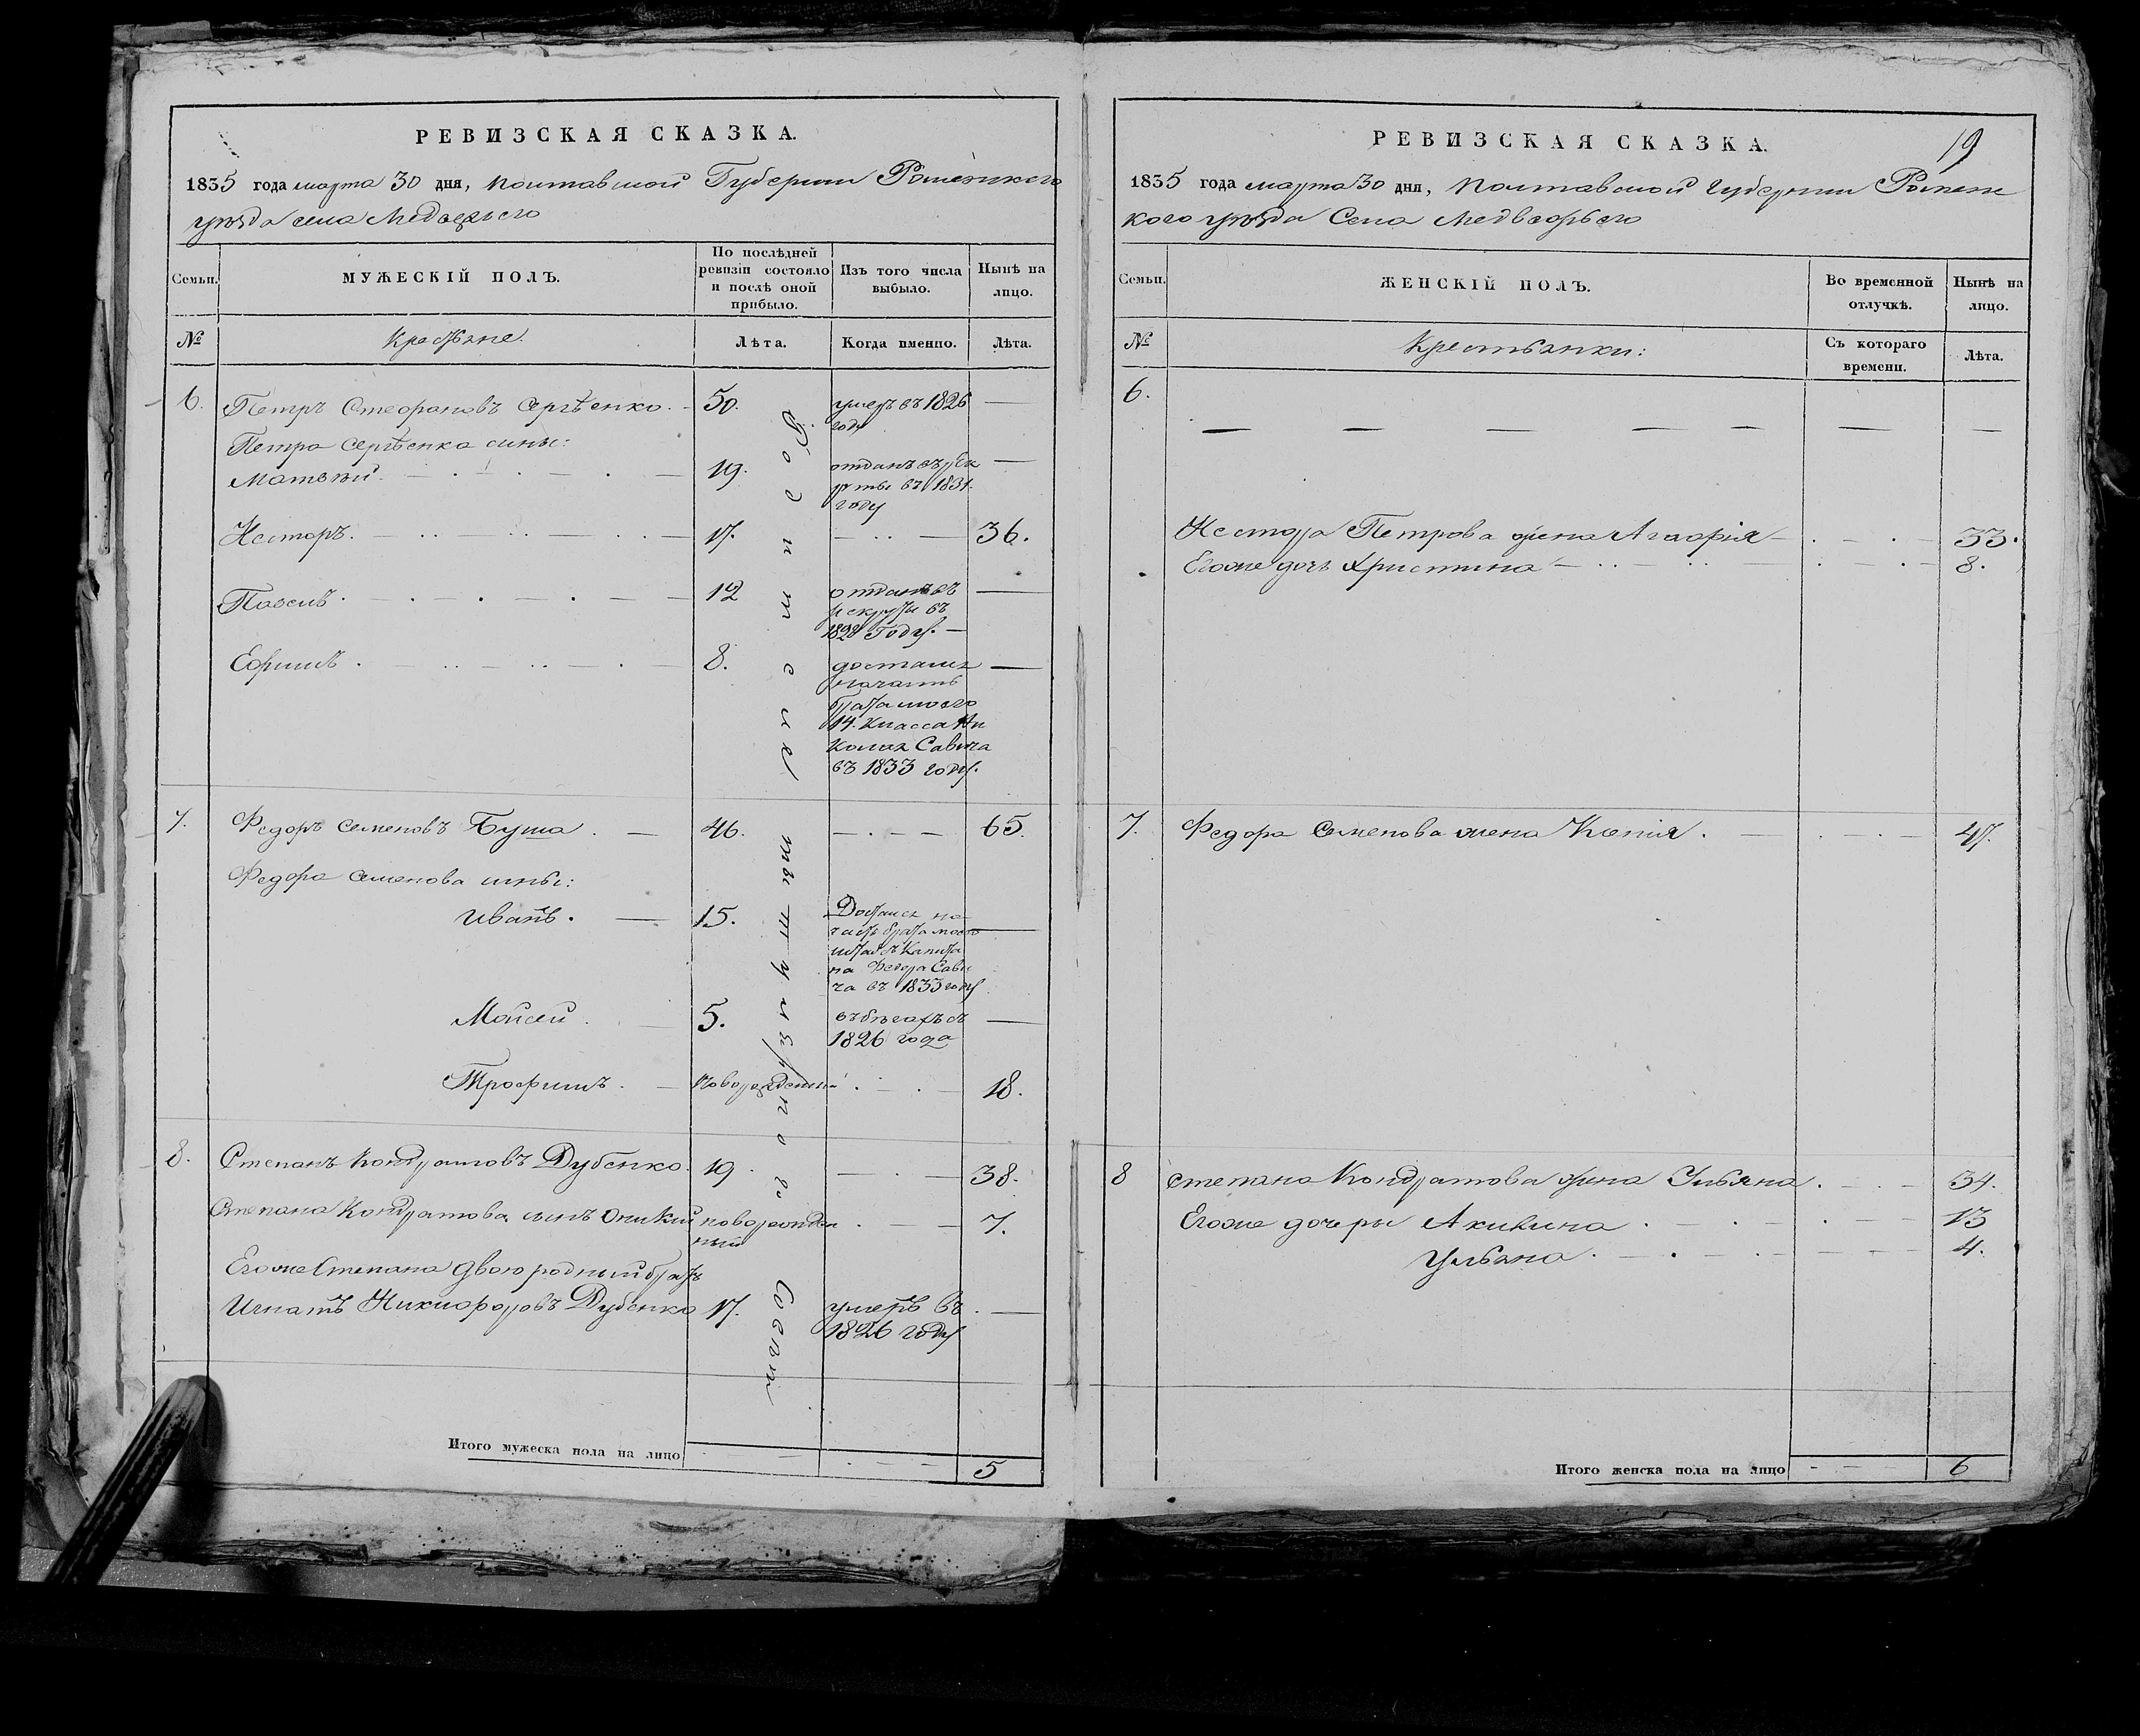 РЕВИЗСКАЯ СКАЗКА.
1835 года марта 30 дня, Полтавской Губернии Роменского
уезда села Медвежьего
Семьи.
МУЖЕСКІЙ ПОЛЪ.
По послѣдней
ревизіи состояло
и послѣ оной
прибыло.
Изъ того числа
выбыло.
Нынѣ на
лицо.
№
Крестьяне.
Лѣта.
Когда именно.
Лѣта.
6. Петръ Стефановъ Сергѣенко. 50. умеръ въ 1826 —
году
Петра Сергѣенка сины:
Матвѣй. 19. отданъ въ рек —
руты въ 1831.
году
Несторъ. 17. — 36.
12 отданъ въ —
рекруты въ
1828 Году. —
Ефимъ. 8. достался —
начасть
брата моего
14. класса Ни
колая Савича
въ 1833 году.
7. Федоръ Семеновъ Буша. — 46. — 65.
Федора Семенова сины:
Иванъ. — 15. Достался на
часть брата моего —
штабсъ Капита
на Федора Сави
ча въ 1833 году
Мойсей. 5. въ бѣгахъ съ —
1826 года
Трофимъ. — новорожденный — 18.
8. Степанъ Кондратовъ Дубенко. 19. — 38.
Степана Кондратова сынъ Оникій новорожден — 7.
ный
Егоже Степана двоюродный братъ
Игнатъ Никифоровъ Дубенко 17. умеръ въ. —
1826 году
Итого мужеска пола на лицо
5
РЕВИЗСКАЯ СКАЗКА.
19
1835 года марта 30 дня, Полтавской губернии Ромен
кого уезда Села Медвежьего
Семьи.
ЖЕНСКІЙ ПОЛЪ.
Во временной
отлучкѣ.
Нынѣ на
лицо.
№
Крестьянки:
Съ котораго
времени.
Лѣта.
6.
— — — — — — —
Нестора Петрова жена Агафія — 33.
Егоже дочь Христина — 8.
7. Федора Семенова жена Ксенія. — 47.
8 Степана Кондратова жена Ульяна. — 34.
Егоже дочеры Акилина. — 13
Ульяна. — 4.
Итого женска пола на лицо
6